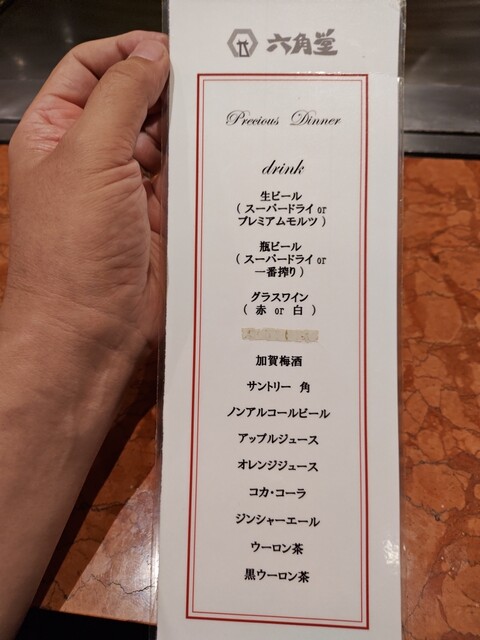 六角堂
Precious Dinner
drink
生ビール
( スーパードライ or
プレミアムモルツ )
瓶ビール
( スーパードライ or
一番搾り )
グラスワイン
( 赤 or 白 )
加賀梅酒
サントリー 角
ノンアルコールビール
アップルジュース
オレンジジュース
コカ・コーラ
ジンジャーエール
ウーロン茶
黒ウーロン茶